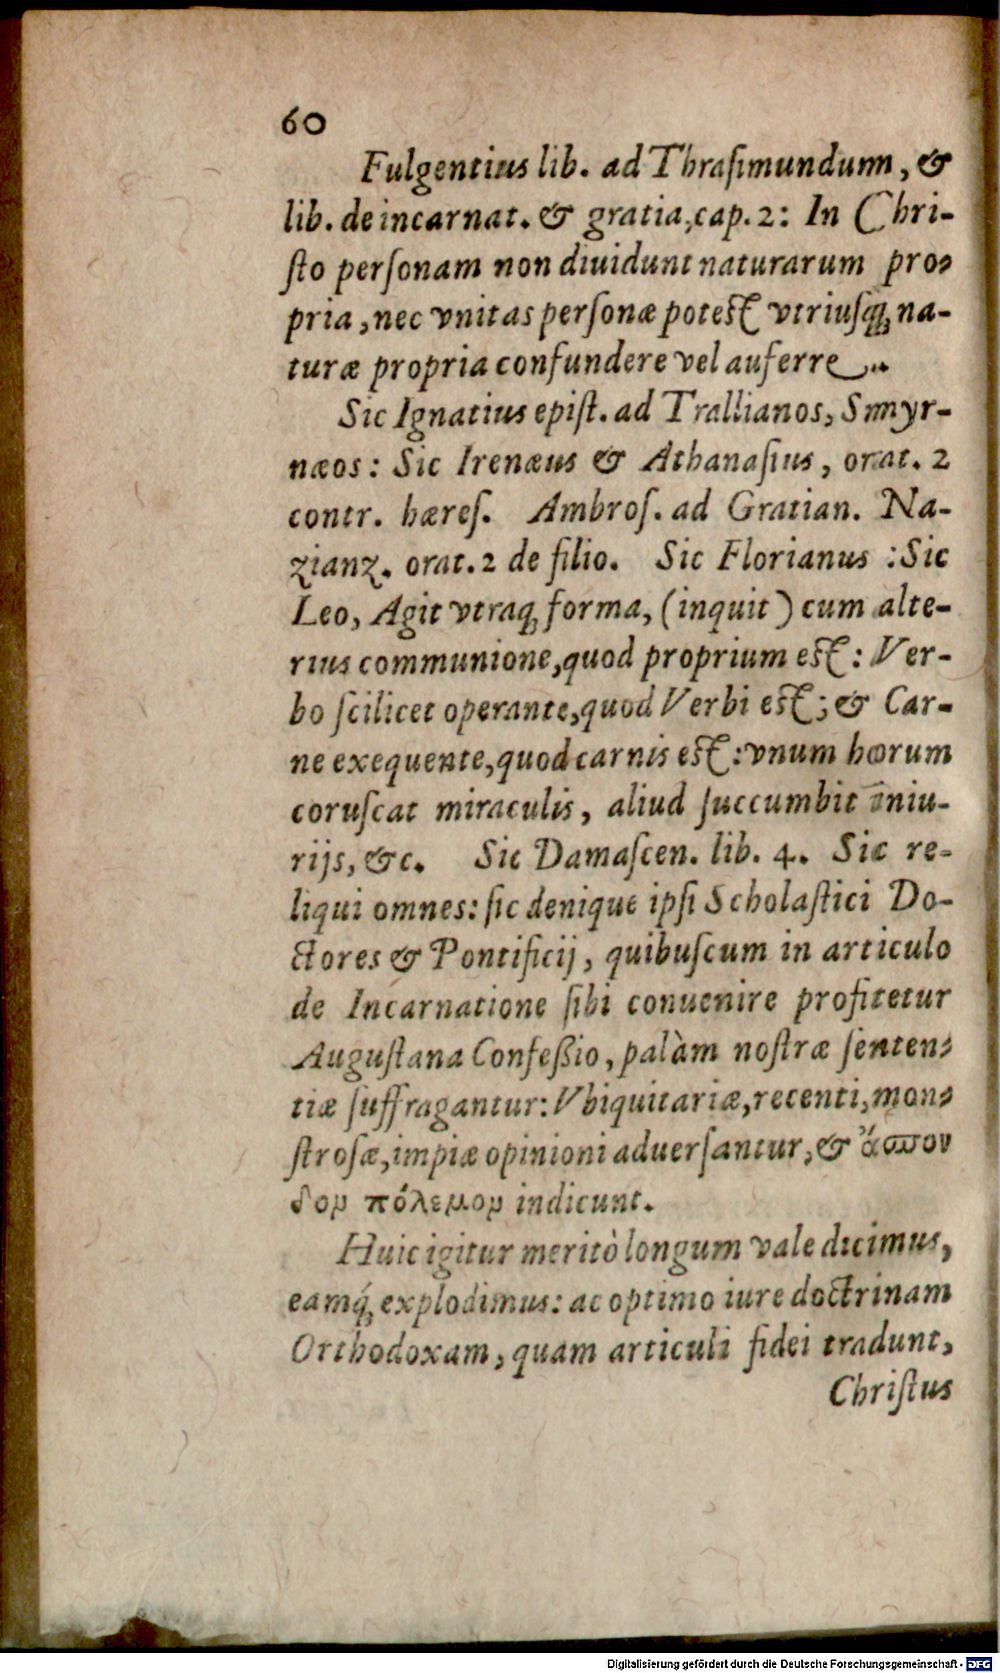 60
Fulgentius lib. ad Thrasimundum, &
lib. de incarnat. & gratia, cap. 2: In Chri-
ſto perſonam non diuidunt naturarum pro-
pria, nec vnitas perſonæ poteſt vtriuſq; na-
turæ propria confundere vel auferre.
Sic Ignatius epiſt. ad Trallianos, Smyr-
næos: Sic Irenæus & Athanaſius, orat. 2
contr. hæreſ. Ambroſ. ad Gratian. Na-
zianz. orat. 2 de filio. Sic Florianus : Sic
Leo, Agit vtraq; forma, (inquit) cum alte-
rius communione, quod proprium eſt: Ver-
bo ſcilicet operante, quod Verbi eſt; & Car-
ne exequente, quod carnis eſt: vnum horum
coruſcat miraculis, aliud ſuccumbit iniu-
rijs, &c. Sic Damaſcen. lib. 4. Sic re-
liqui omnes: ſic denique ipſi Scholaſtici Do-
ctores & Pontificij, quibuſcum in articulo
de Incarnatione ſibi conuenire profitetur
Auguſtana Confeßio, palàm noſtræ ſenten-
tiæ ſuffragantur: Vbiquitariæ, recenti, mon-
ſtroſæ, impiæ opinioni aduerſantur, & ἄσπον
δον πόλεμον indicunt.
Huic igitur meritò longum vale dicimus,
eamq́; explodimus: ac optimo iure doctrinam
Orthodoxam, quam articuli fidei tradunt,
Chriſtus
Digitalisierung gefördert durch die Deutsche Forschungsgemeinschaft - DFG